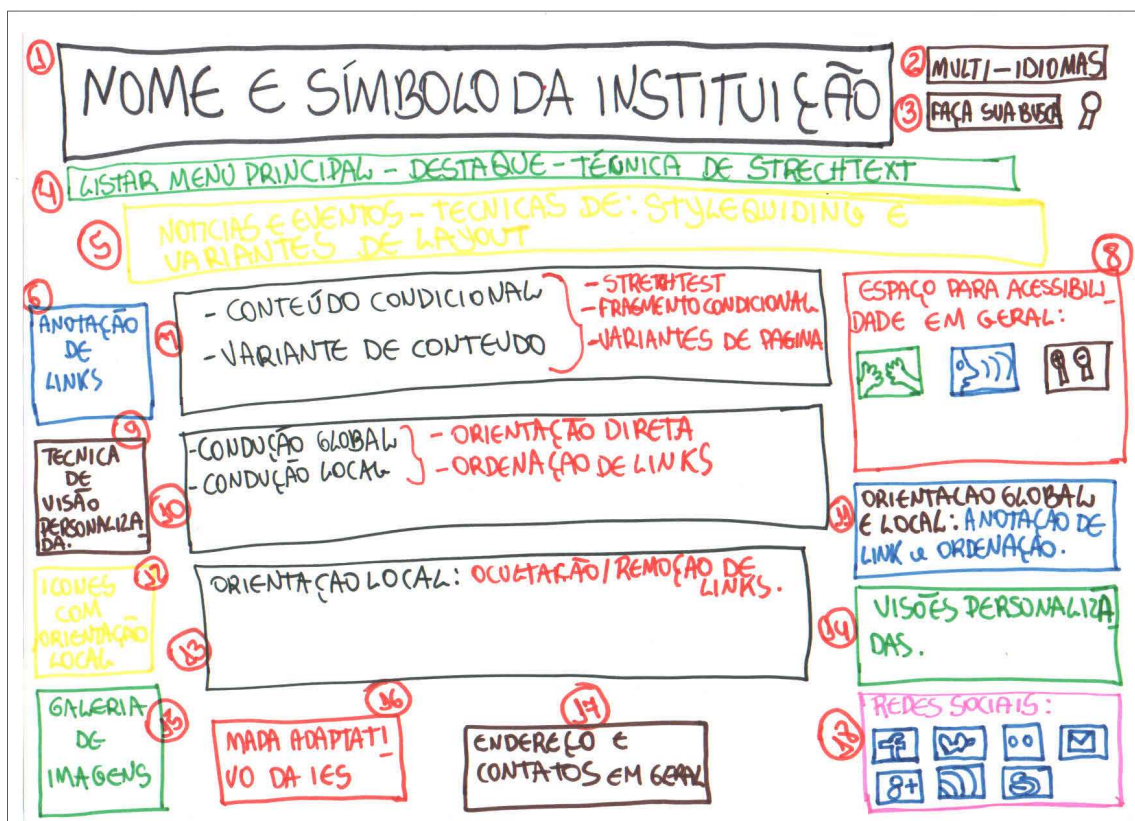 1 NOME E SÍMBOLO DA INSTITUIÇÃO
2 MULTI-IDIOMAS
3 FAÇA SUA BUSCA
4 LISTAR MENU PRINCIPAL - DESTAQUE - TÉCNICA DE STRECHTEXT
5 NOTICIAS E EVENTOS - TECNICAS DE: STYLEQUIDING E
VARIANTES DE LAYOUT
6
ANOTAÇÃO
DE
LINKS
7
- CONTEÚDO CONDICIONAL
- VARIANTE DE CONTEUDO
- STRETHTEST
- FRAGMENTO CONDICIONAL
- VARIANTES DE PAGINA
8
ESPAÇO PARA ACESSIBILI_
DADE EM GERAL:
9
TECNICA
DE
VISÃO
PERSONALIZA
DA.
10
- CONDUÇÃO GLOBAL
- CONDUÇÃO LOCAL
- ORIENTAÇÃO DIRETA
- ORDENAÇÃO DE LINKS
11
ORIENTAÇAO GLOBAL
E LOCAL: ANOTAÇAO DE
LINK e ORDENAÇÃO.
12
ICONES
COM
ORIENTAÇÃO
LOCAL
13
ORIENTAÇÃO LOCAL: OCULTAÇÃO/REMOÇÃO DE
LINKS.
14
VISÕES PERSONALIZA
DAS.
15
GALERIA
DE
IMAGENS
16
MAPA ADAPTATI
VO DA IES
17
ENDEREÇO E
CONTATOS EM GERAL
18
REDES SOCIAIS:
f
8+